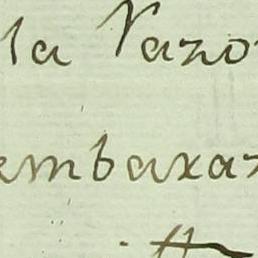 la Razo
embaraz